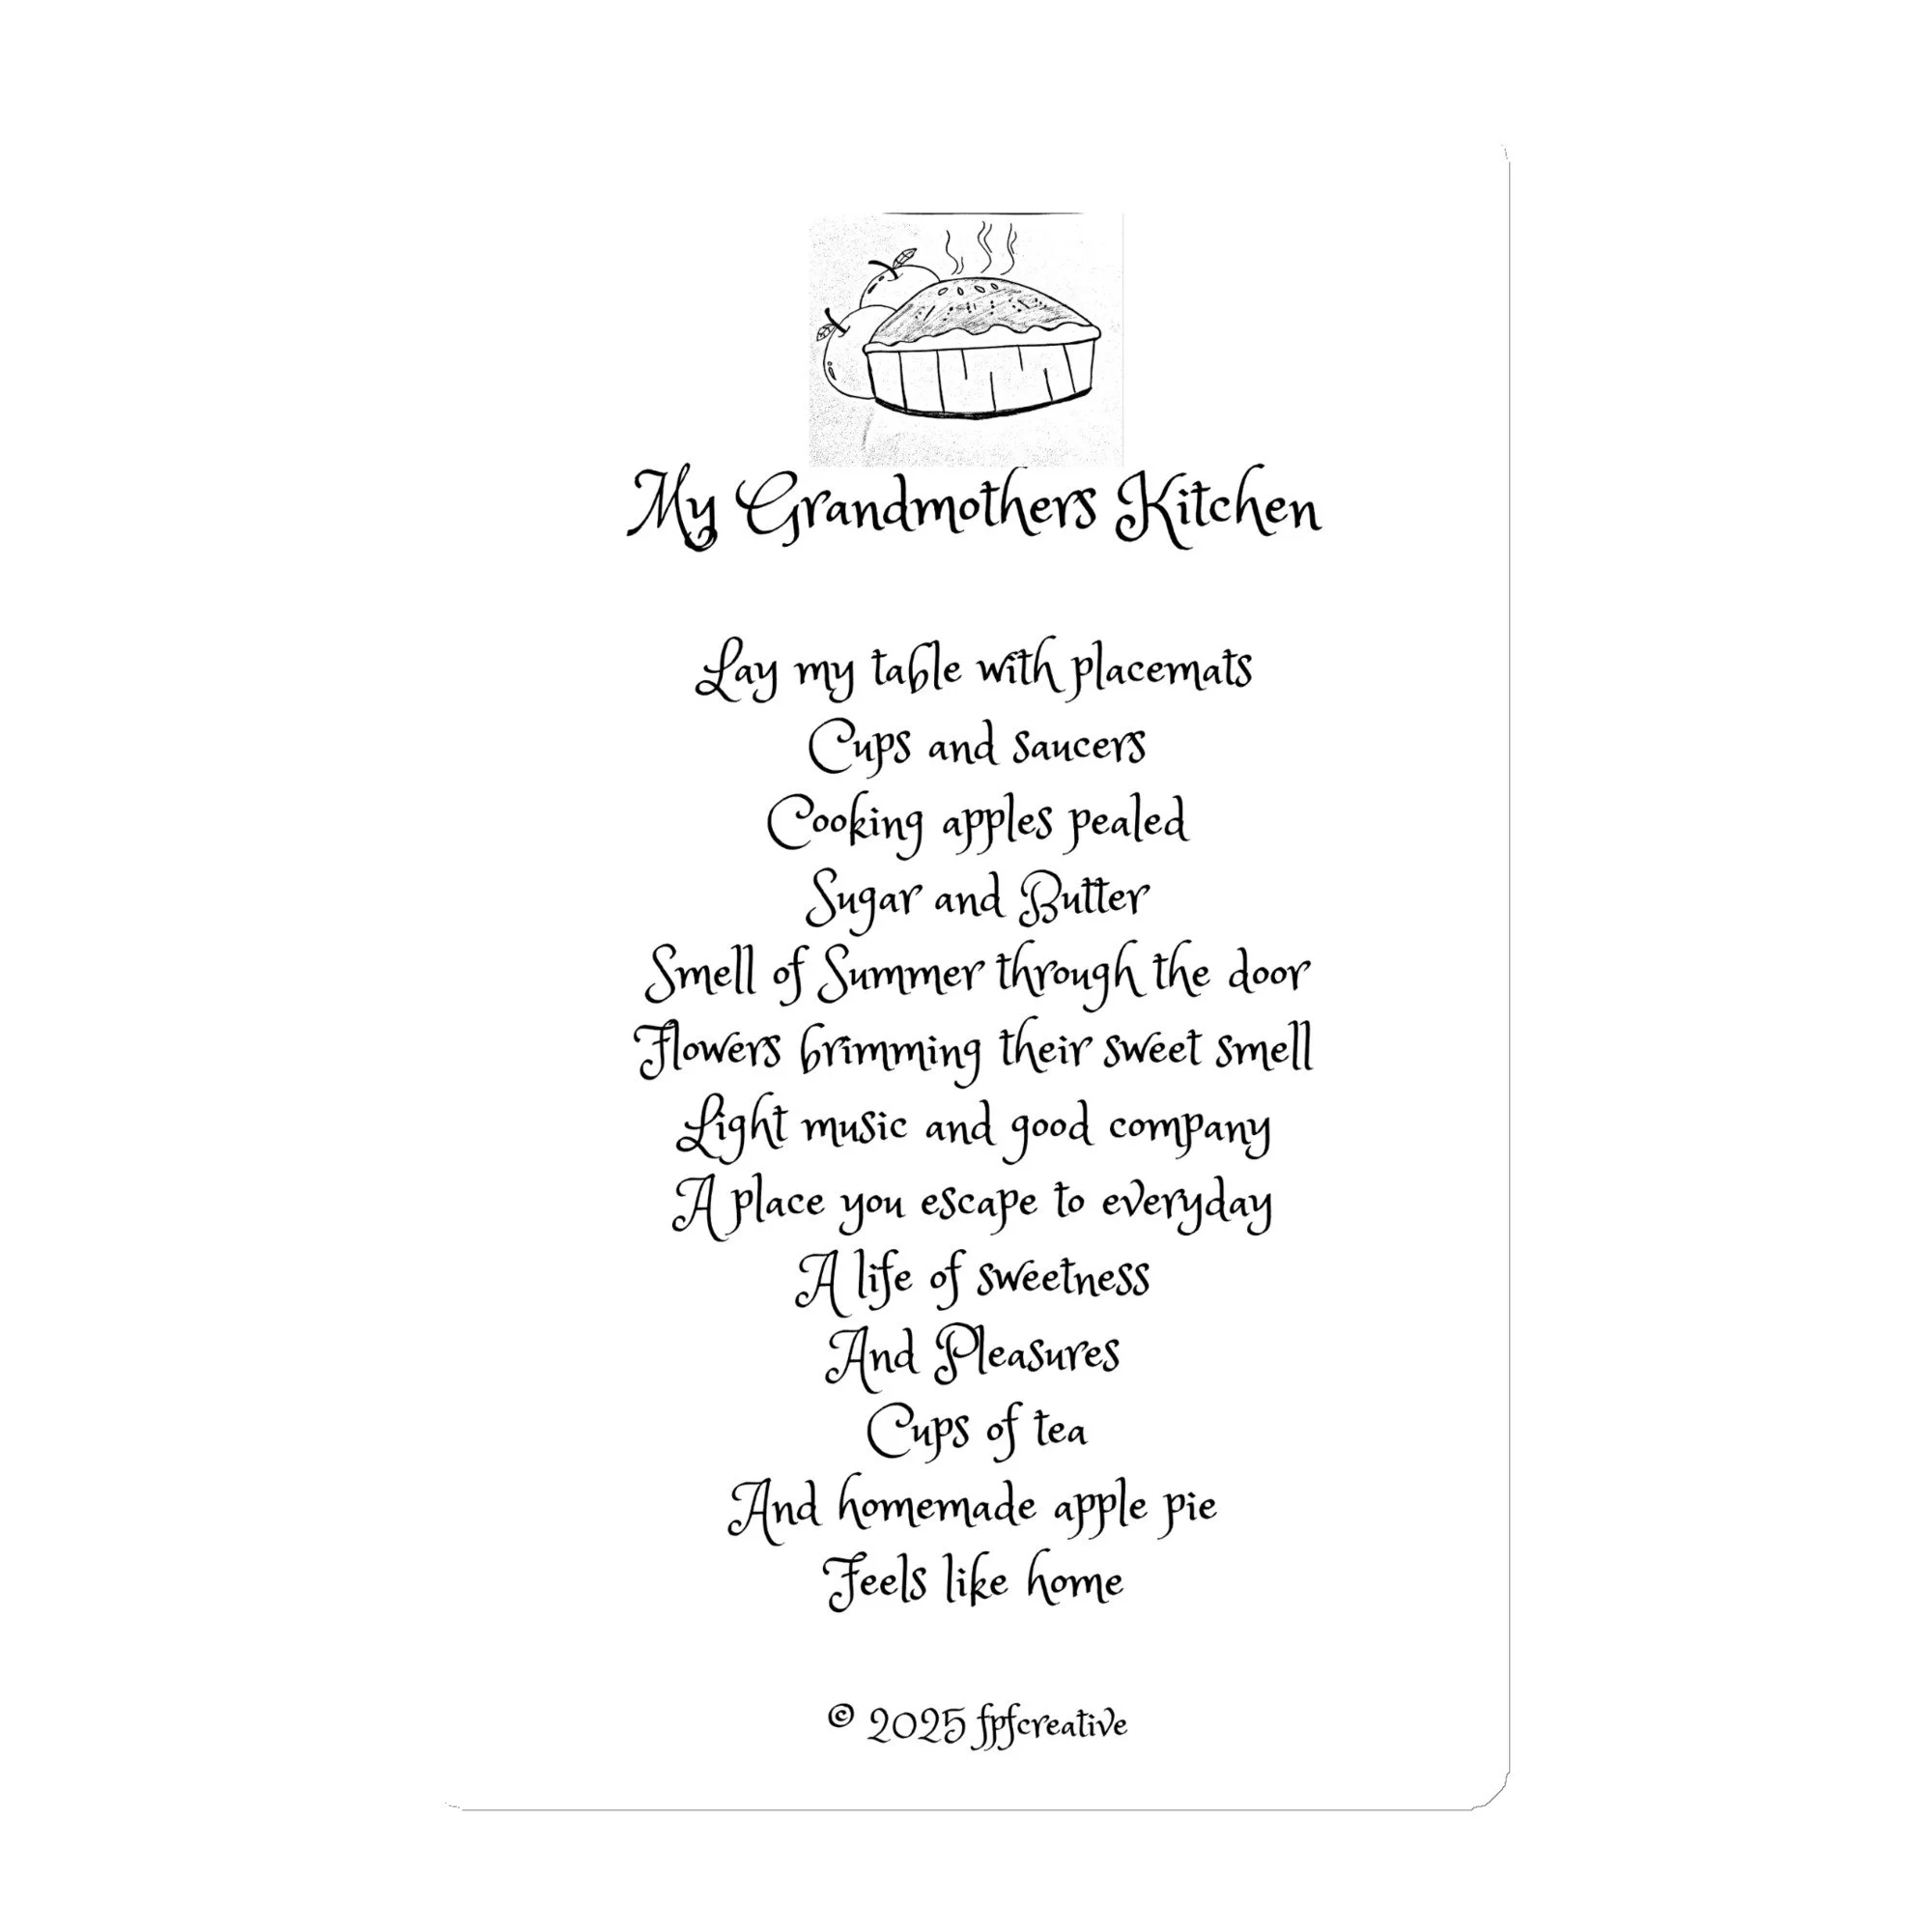 My Grandmothers Kitchen
Lay my table with placemats
Cups and saucers
Cooking apples pealed
Sugar and Butter
Smell of Summer through the door
Flowers brimming their sweet smell
Light music and good company
A place you escape to everyday
A life of sweetness
And Pleasures
Cups of tea
And homemade apple pie
Feels like home
© 2025 fpfcreative